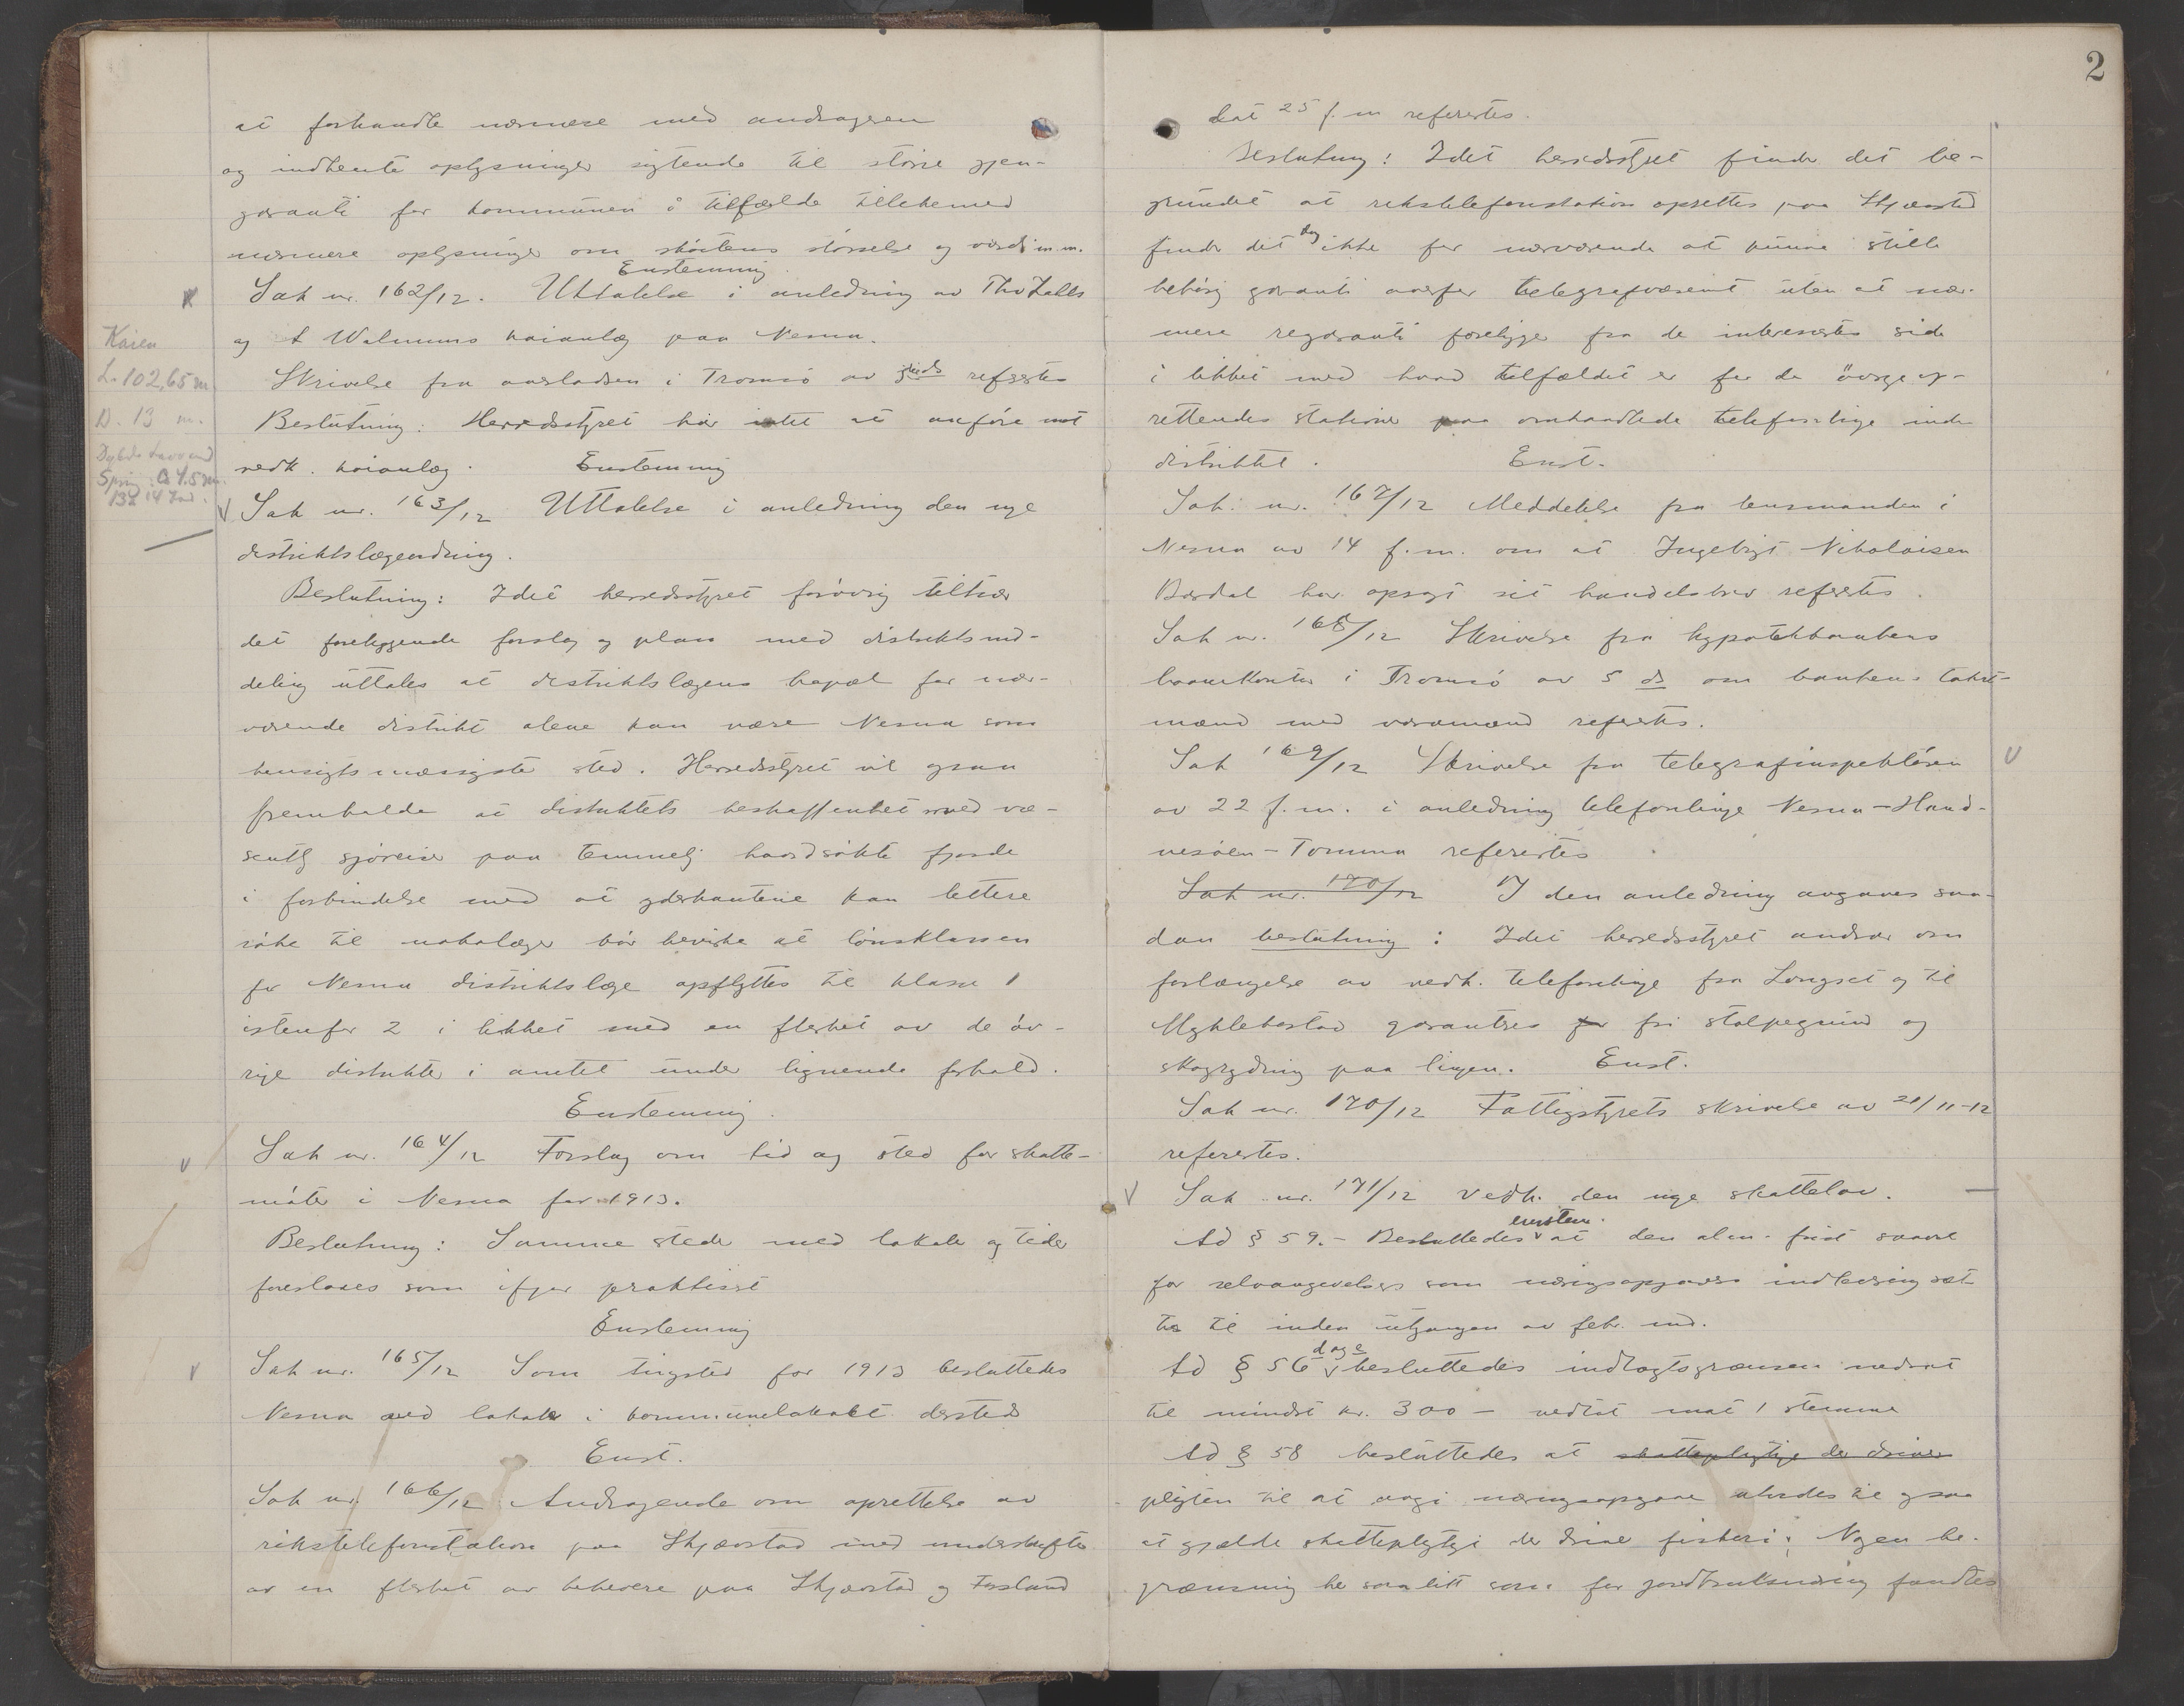 at forhandle nærmere med andrageren
og indhente oplysninger sigtende til større gjen-
garanti for kommunen i tilfælde tillikemed
nærmere oplysninger om skøitens størrelse og værdi m.m.
Enstemmig.
Sak nr. 162/12. Uttalelse i anledning av Thv Zahls
og A Walnums kaianlæg paa Nesna.
Kaien
L. 102,65 m
D. 13 m.
Skrivelse fra amtsladsen i Tromsø av refertes
Beslutning: Herredsstyret har intet at anføre mot
vedk. kaianlæg. Enstemmig
Sak nr. 163/12 Uttalelse i anledning den nye
distriktslægeordning.
Beslutning: Idet herredsstyret forøvrig tiltrær
det foreliggende forslag og plan med distriktsind-
deling uttales at distriktslægens bopæl for nær-
værende distrikt alene kan være Nesna som
hensigtsmæssigste sted. Herredsstyret vil ogsaa
fremholde at distriktets beskaffenhet med væ-
sentlig sjøreiser paa temmelig haardsøkte fjorde
i forbindelse med at yderkantene kan lettere
søke til nabolæger bør bevirke at lønsklassen
for Nesna distriktslæge opflyttes til klasse 1
istenfor 2 i likhet med en flerhet av de øv-
rige distrikter i amtet under lignende forhold.
Enstemmig.
Sak nr. 164/12 Forslag om tid og sted for skatte-
møter i Nesna for 1913.
Beslutning: Samme steder med lokale og tider
foreslaaes som ifjor praktisert
Enstemmig
Sak nr. 165/12 Som tingsted for 1913 besluttedes
Nesna med lokale i kommunelokalet dersteds
Enst.
Sak nr. 166/12 Andragende om oprettelse av
rikstelefonstation paa Skjærstad med underskrifter
av en flerhet av beboere paa Skjærstad og Forsland
2
dat 25 f.m refertes.
Beslutning: Idet herredsstyret finder det be-
grundet at rikstelefonstation oprettes paa Skjærstad
finder det dog ikke for nærværende at kunne stille
behørig garanti overfor telegrafvæsenet uten at nær-
mere regaranti foreligger fra de interesertes side
i likhet med hvad tilfældet er for de øvrige op-
rettendes stationer paa omhandlede telefonlinje inden
distriktet. Enst.
Sak. nr. 167/12 Meddelelse fra lensmanden i
Nesna av 14 f.m. om at Ingebrigt Nikolaisen
Bardal har opsagt sit handelsbrev refertes.
Sak nr. 168/12 Skrivelse fra hypotekbankens
laanekontor i Tromsø av 5 ds om bankens takst-
mænd med varamænd refertes.
Sak 169/12 Skrivelse fra telegrafinspektøren
av 22 f.m. i anledning telefonlinje Nesna-Hand-
nesøen-Tomma refertes
Sak nr. 170/12 I den anledning avgaves saa-
dan beslutning: Idet herredsstyret andrar om
forlængelse av vedk. telefonlinje fra Langset og til
Myklebostad garanteres for fri stolpegrund og
skogrydning paa linjen. Enst.
Sak nr. 170/12 Fattigstyrets skrivelse av 21/11-12
refertes.
Sak nr. 171/12 Vedk. den nye skattelov.
enstem.
Ad § 59.- Besluttedes at den alm. frist saavel
for selvangivelses som næringsopgaves indlevering sæt-
tes til inden utgangen av febr. md.
dage
Ad § 56 besluttedes indtægtsgrænsen nedsat
til mindst kr. 300 - vedtat mot 1 stemme
Ad § 58 besluttedes at skattepligtige der driver
pligten til at avgi næringsopgave utvides til ogsaa
at gjælde skattepligtige der driver fiskeri; Nogen be-
grænsning her saalitt som for jordbruksnæring fandtes